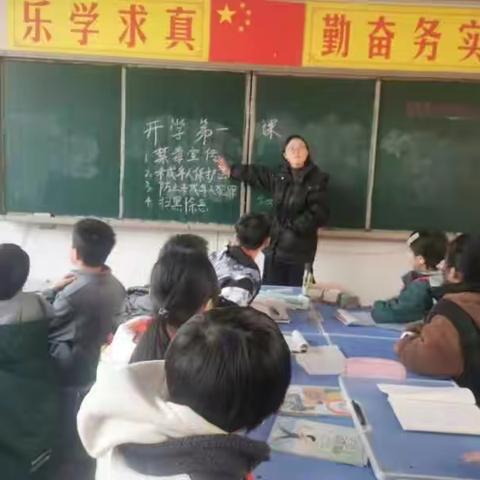 乐学求真
勤奋务实
开学第一课
1. 禁毒宣传
2. 未成年人保护法
3. 防止未成年人犯罪
4. 扫黑除恶